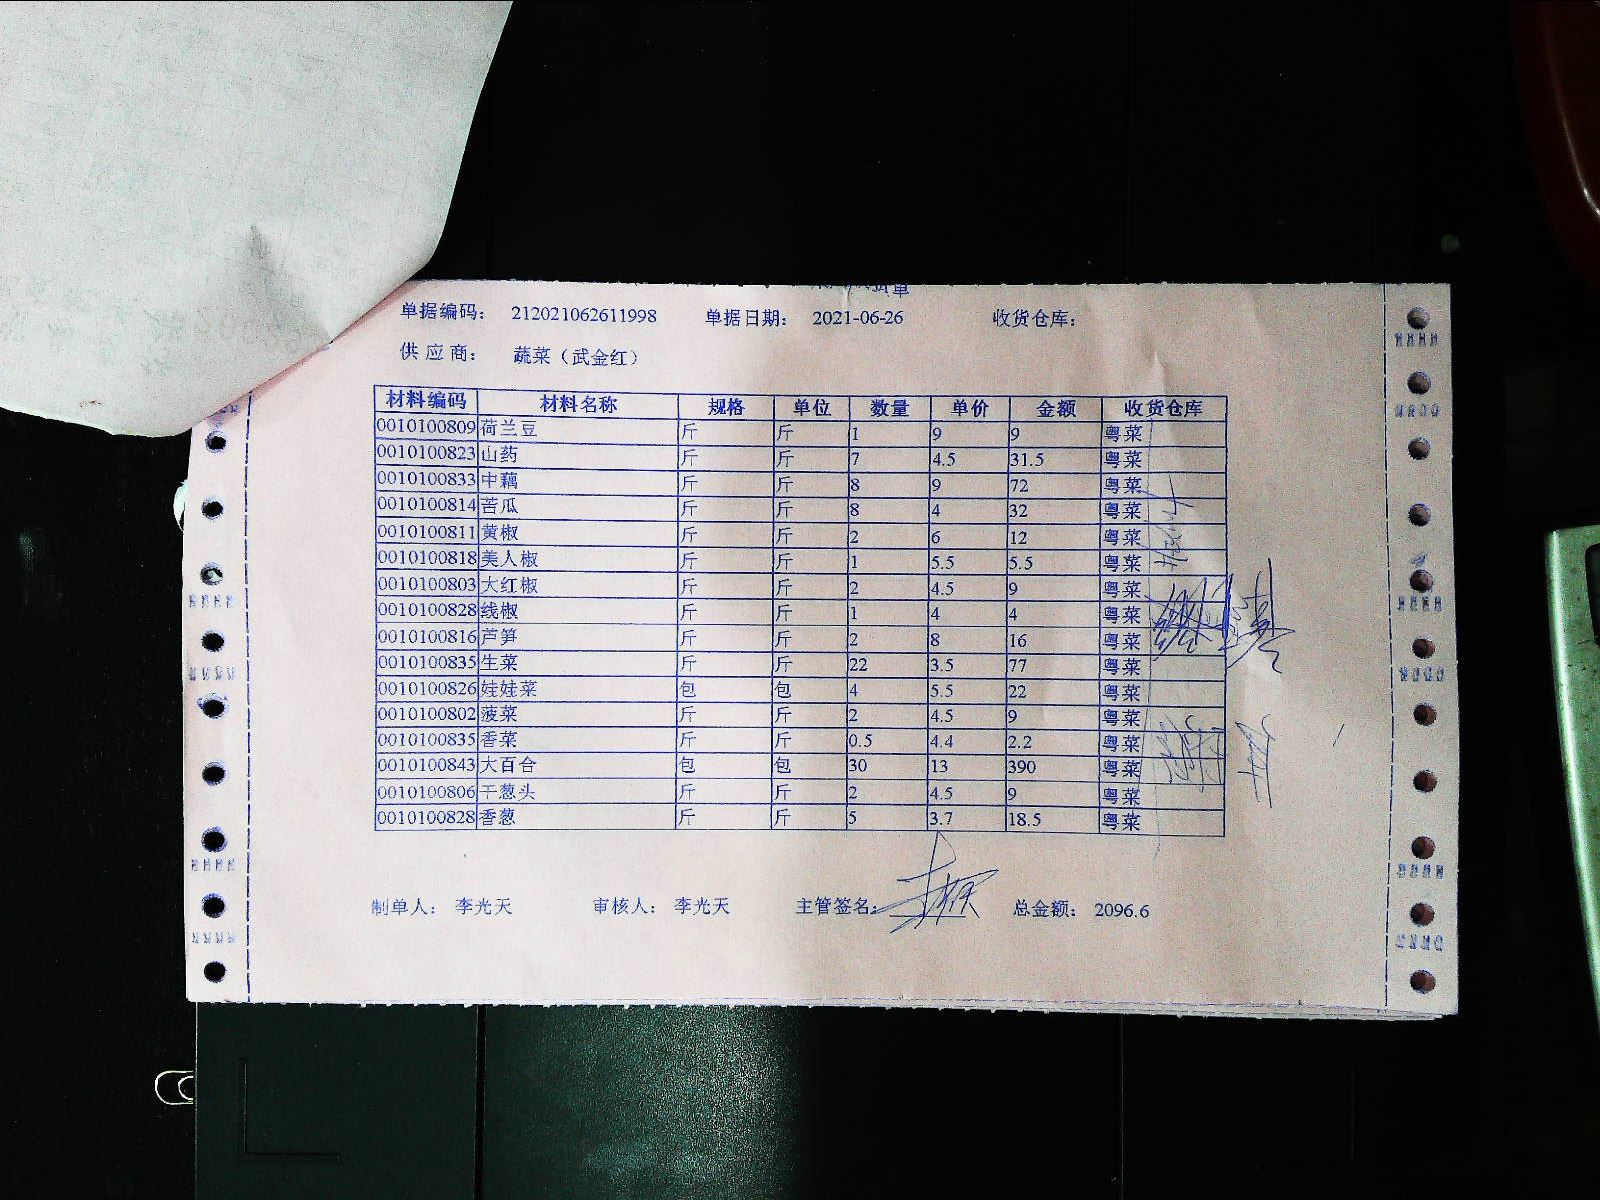 单据编码: 212021062611998 单据日期: 2021-06-26 收货仓库:
供应商: 蔬菜（武金红）
材料编码 材料名称 规格 单位 数量 单价 金额 收货仓库
0010100809 荷兰豆 斤 斤 1 9 9 粤菜
0010100823 山药 斤 斤 7 4.5 31.5 粤菜
0010100833 中藕 斤 斤 8 9 72 粤菜
0010100814 苦瓜 斤 斤 8 4 32 粤菜
0010100811 黄椒 斤 斤 2 6 12 粤菜
0010100818 美人椒 斤 斤 1 5.5 5.5 粤菜
0010100803 大红椒 斤 斤 2 4.5 9 粤菜
0010100828 线椒 斤 斤 1 4 4 粤菜
0010100816 芦笋 斤 斤 2 8 16 粤菜
0010100835 生菜 斤 斤 22 3.5 77 粤菜
0010100826 娃娃菜 包 包 4 5.5 22 粤菜
0010100802 菠菜 斤 斤 2 4.5 9 粤菜
0010100835 香菜 斤 斤 0.5 4.4 2.2 粤菜
0010100843 大百合 包 包 30 13 390 粤菜
0010100806 干葱头 斤 斤 2 4.5 9 粤菜
0010100828 香葱 斤 斤 5 3.7 18.5 粤菜
制单人: 李光天 审核人: 李光天 主管签名: 总金额: 2096.6